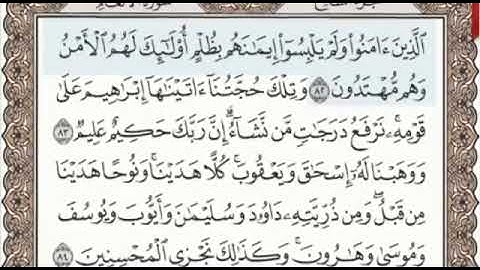 ٱلَّذِينَ ءَامَنُوا۟ وَلَمْ يَلْبِسُوٓا۟ إِيمَٰنَهُم بِظُلْمٍ أُو۟لَٰٓئِكَ لَهُمُ ٱلْأَمْنُ
وَهُم مُّهْتَدُونَ ٨٢ وَتِلْكَ حُجَّتُنَآ ءَاتَيْنَٰهَآ إِبْرَٰهِيمَ عَلَىٰ
قَوْمِهِۦ ۚ نَرْفَعُ دَرَجَٰتٍ مَّن نَّشَآءُ ۗ إِنَّ رَبَّكَ حَكِيمٌ عَلِيمٌ ٨٣
وَوَهَبْنَا لَهُۥٓ إِسْحَٰقَ وَيَعْقُوبَ ۚ كُلًّا هَدَيْنَا ۚ وَنُوحًا هَدَيْنَا
مِن قَبْلُ ۖ وَمِن ذُرِّيَّتِهِۦ دَاوُۥدَ وَسُلَيْمَٰنَ وَأَيُّوبَ وَيُوسُفَ
وَمُوسَىٰ وَهَٰرُونَ ۚ وَكَذَٰلِكَ نَجْزِى ٱلْمُحْسِنِينَ ٨٤